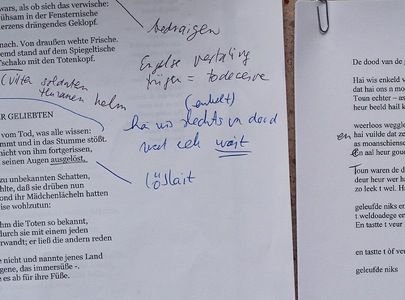 wars, als ob sich das verwische:
ühsam in der Fensternische
erzens drängendes Geklopf.
nach. Von draußen wehte Frische.
emd stand auf dem Spiegeltische
Tschako mit den Totenkopf.
(uiter soldaten
helm
ER GELIEBTEN
vom Tod, was alle wissen:
mt und in das Stumme stößt.
nicht von ihm fortgerissen,
seinen Augen ausgelöst,
zu unbekannten Schatten,
hlte, daß sie drüben nun
ond ihr Mädchenlächeln hatten
eise wohlzutun:
hm die Toten so bekannt,
durch sie mit einem jeden
rwandt; er ließ die andern reden
e nicht und nannte jenes Land
gene, das immersüße -.
e es ab für ihre Füße.
Engelse vertaling
(enkelt)
hai wos slechts van dood
wat elk wait
löslait
De dood van de g
Hai wis enkeld v
dat hai ons n mo
Toun echter – as
heur beeld hail k
weerloos weggle
en hai vuilde dat ze
as moanschiense
en aal heur goud
Toun waren de d
deur heur wer ha
zo leek t wel. Ha
geleufde niks en
t weldoadege en
En tastte t veur
en tastte t òf ve
geleufde niks